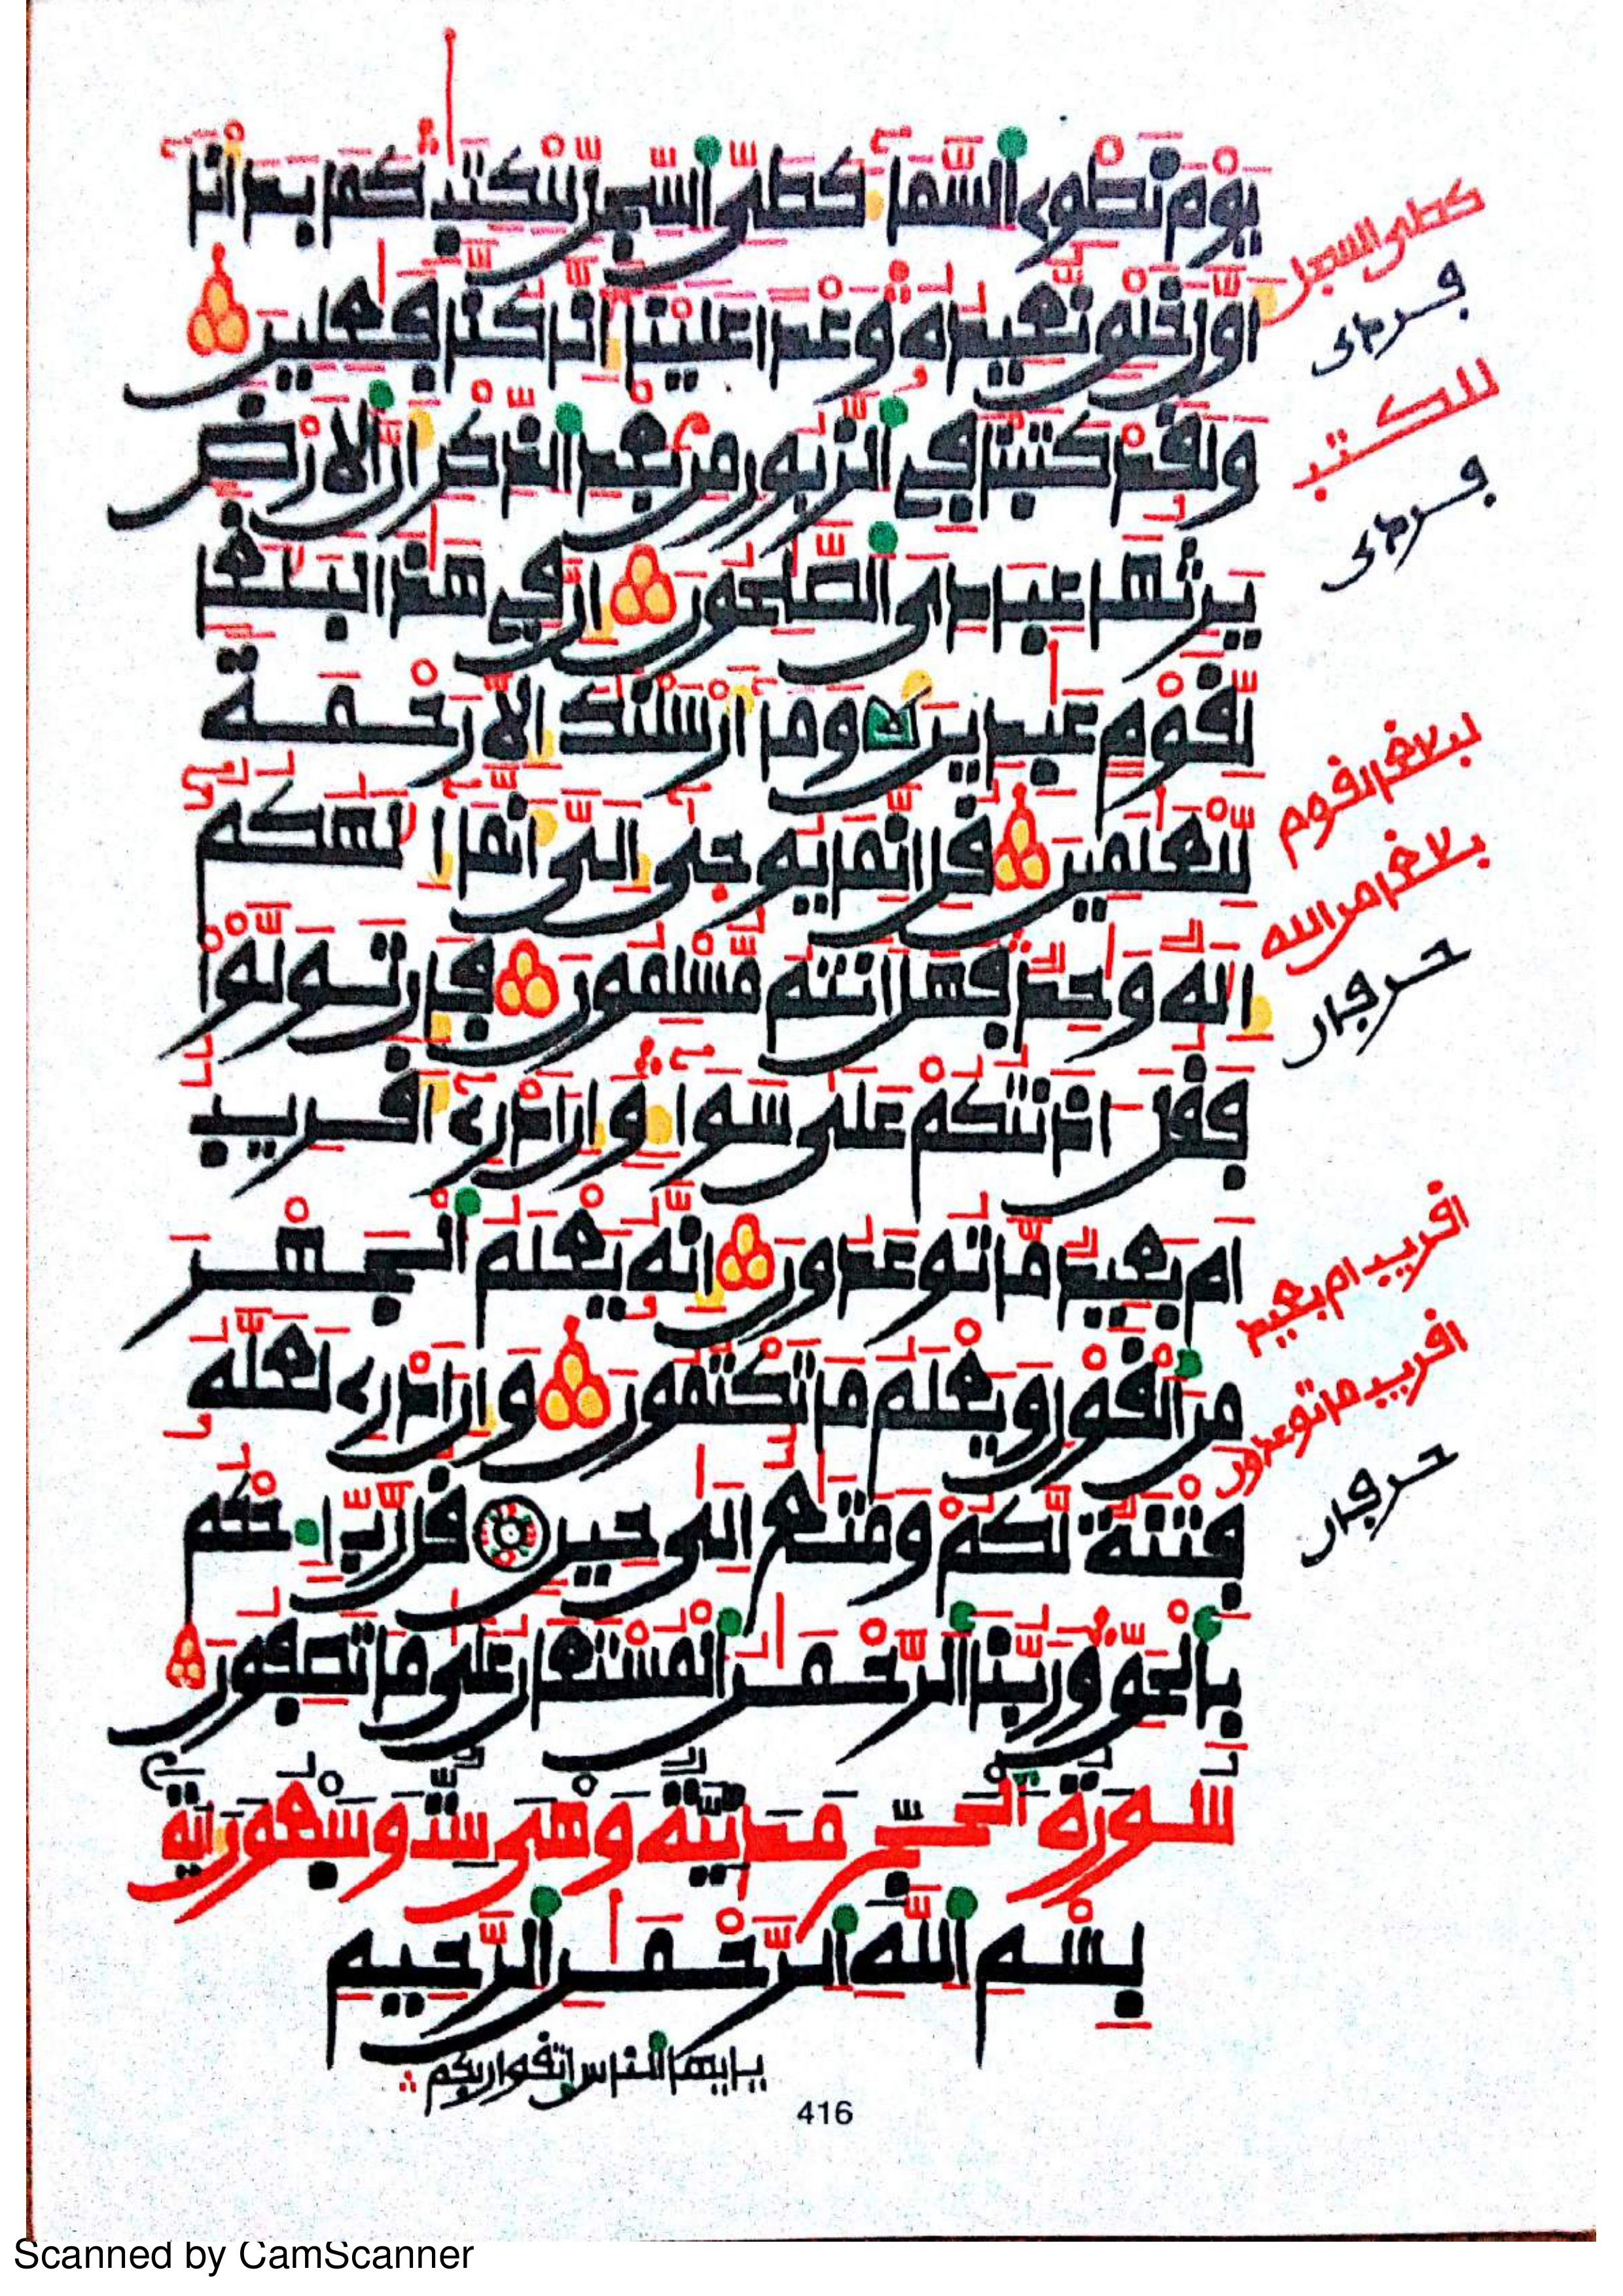 يَوْمَ نَطْوِى اَ۬لسَّمَآءَ كَطَيِّ اِ۬لسِّجِلِّ لِلْكِتَٰبِ كَمَا بَدَأْنَآ
أَوَّلَ خَلْقٍ نُّعِيدُهُۥ وَعْداً عَلَيْنَآ إِنَّا كُنَّا فَٰعِلِينَ
وَلَقَدْ كَتَبْنَا فِي اِ۬لزَّبُورِ مِنۢ بَعْدِ اِ۬لذِّكْرِ أَنَّ اَ۬لَارْضَ
يَرِثُهَا عِبَادِيَ اَ۬لصَّٰلِحُونَ إِنَّ فِي هَٰذَا لَبَلَٰغاً
لِّقَوْمٍ عَٰبِدِينَ وَمَآ أَرْسَلْنَٰكَ إِلَّا رَحْمَةً
لِّلْعَٰلَمِينَ قُلِ اِنَّمَا يُوحَىٰٓ إِلَيَّ أَنَّمَآ إِلَٰهُكُمُۥٓ
إِلَٰهٌ وَٰحِدٌ فَهَلَ اَنتُم مُّسْلِمُونَ فَإِن تَوَلَّوْا
فَقُلَ اٰذَنتُكُمْ عَلَىٰ سَوَآءٍ وَإِنَ اَدْرِےٓ أَقَرِيبٌ
اَم بَعِيدٌ مَّا تُوعَدُونَ إِنَّهُۥ يَعْلَمُ اُ۬لْجَهْرَ
مِنَ اَ۬لْقَوْلِ وَيَعْلَمُ مَا تَكْتُمُونَ وَإِنَ اَدْرِے لَعَلَّهُۥ
فِتْنَةٌ لَّكُمْ وَمَتَٰعٌ اِلَىٰ حِينٍ قُل رَّبِّ اِ۟حْكُم
بِالْحَقِّ وَرَبُّنَا اَ۬لرَّحْمَٰنُ اُ۬لْمُسْتَعَانُ عَلَىٰ مَا تَصِفُونَ
سُورَةُ اُ۬لْحَجِّ مَدَنِيَّةٌ وَهْىَ سِتٌّ وَسَبْعُونَ ءَايَةً
بِسْمِ اِ۬للَّهِ اِ۬لرَّحْمَٰنِ اِ۬لرَّحِيمِ
يـايها الناس اتقوا ربكم
416
كطى السجل
للكتب
بلاغا لقوم
بلاغا من الله
اقريب ام بعيد
اقريب ما توعدون
Scanned by CamScanner